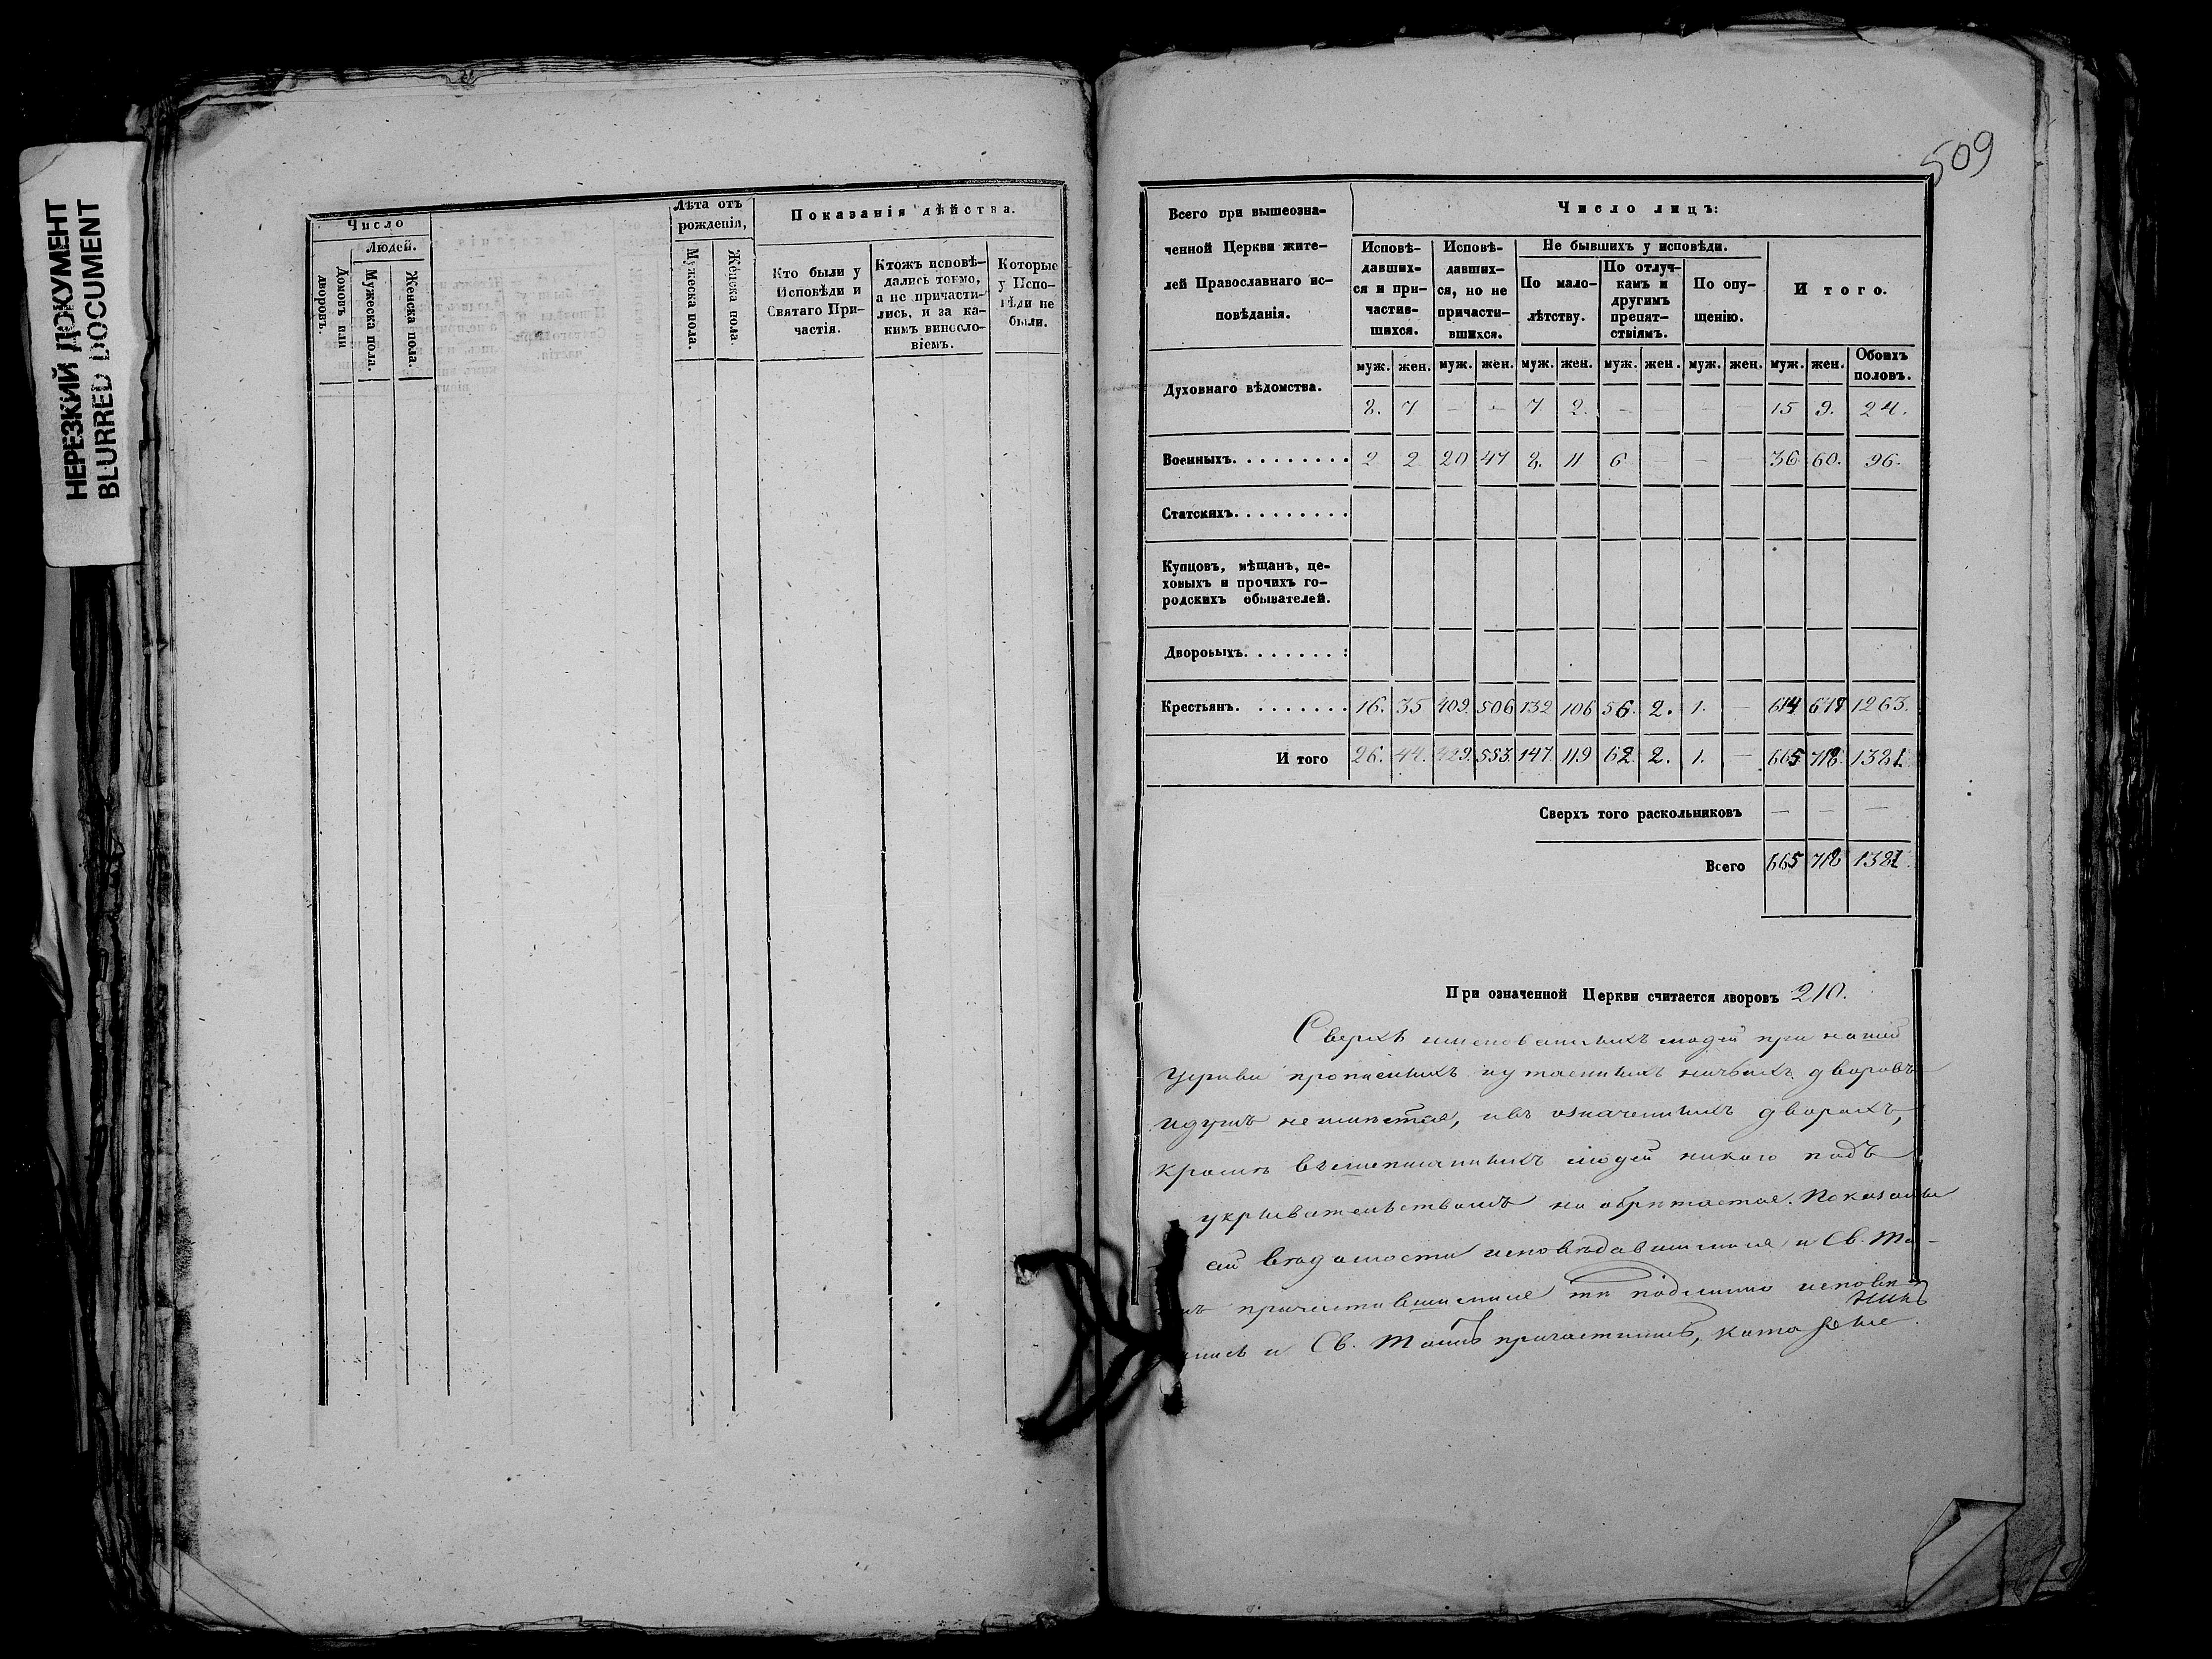 НЕРЕЗКИЙ ДОКУМЕНТ
BLURRED DOCUMENT
Число
Людей.
Домовъ или дворовъ.
Мужеска пола.
Женска пола.
Лѣта отъ рожденія,
Мужеска пола.
Женска пола.
Показанія дѣйства.
Кто были у Исповѣди и Святаго Причастія.
Ктожъ исповѣдались токмо, а не причастились, и за какимъ винословіемъ.
Которые у Исповѣди не были.
509
Всего при вышеозна-
ченной Церкви жите-
лей Православнаго ис-
повѣданія.
Число лицъ:
Исповѣ-давших-ся и при-частив-шихся.
Исповѣ-давших-ся, но не причасти-вшихся.
Не бывшихъ у исповѣди.
По мало-лѣтству.
По отлуч-камъ и другимъ препят-ствіямъ.
По опу-щенію.
Итого.
муж. жен. муж. жен. муж. жен. муж. жен. муж. жен. муж. жен. Обоихъ половъ.
Духовнаго вѣдомства. 8. 7 — — 7. 2. — — — — 15 9. 24.
Военныхъ. 2 2 20 47 8. 11 6 — — — 36 60. 96.
Статскихъ.
Купцовъ, мѣщанъ, це-
ховыхъ и прочихъ го-
родскихъ обывателей.
Дворовыхъ.
Крестьянъ. 16. 35 409. 506 132 106 56. 2. 1. — 614 649 1263.
И того 26. 44. 429. 553. 147. 119 62 2. 1. — 665 718. 1381.
Сверхъ того раскольниковъ — — —
Всего 665 718 1381.
При означенной Церкви считается дворовъ 210.
Сверхъ именованныхъ людей при нашей
Церкви прописныхъ и утаенныхъ дворовъ
и душъ не имѣется, и въ означенныхъ дворахъ,
кромѣ вышеписанныхъ людей никого подъ
укрывательствомъ не обрѣтается. Показанныя
сей вѣдомости исповѣдавшимися и Св. Та-
причастившимися тѣ подлинно исповѣ-
лись и Св. Таинъ причастились, которые